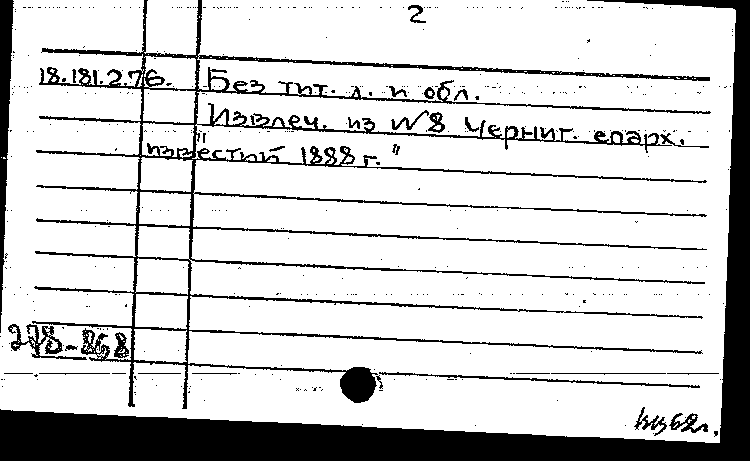 2
18.181.2.76. Без тит. л. и обл.
Извлеч. из №8 Чернит. епарх.
"известий 1888 г."
278-868